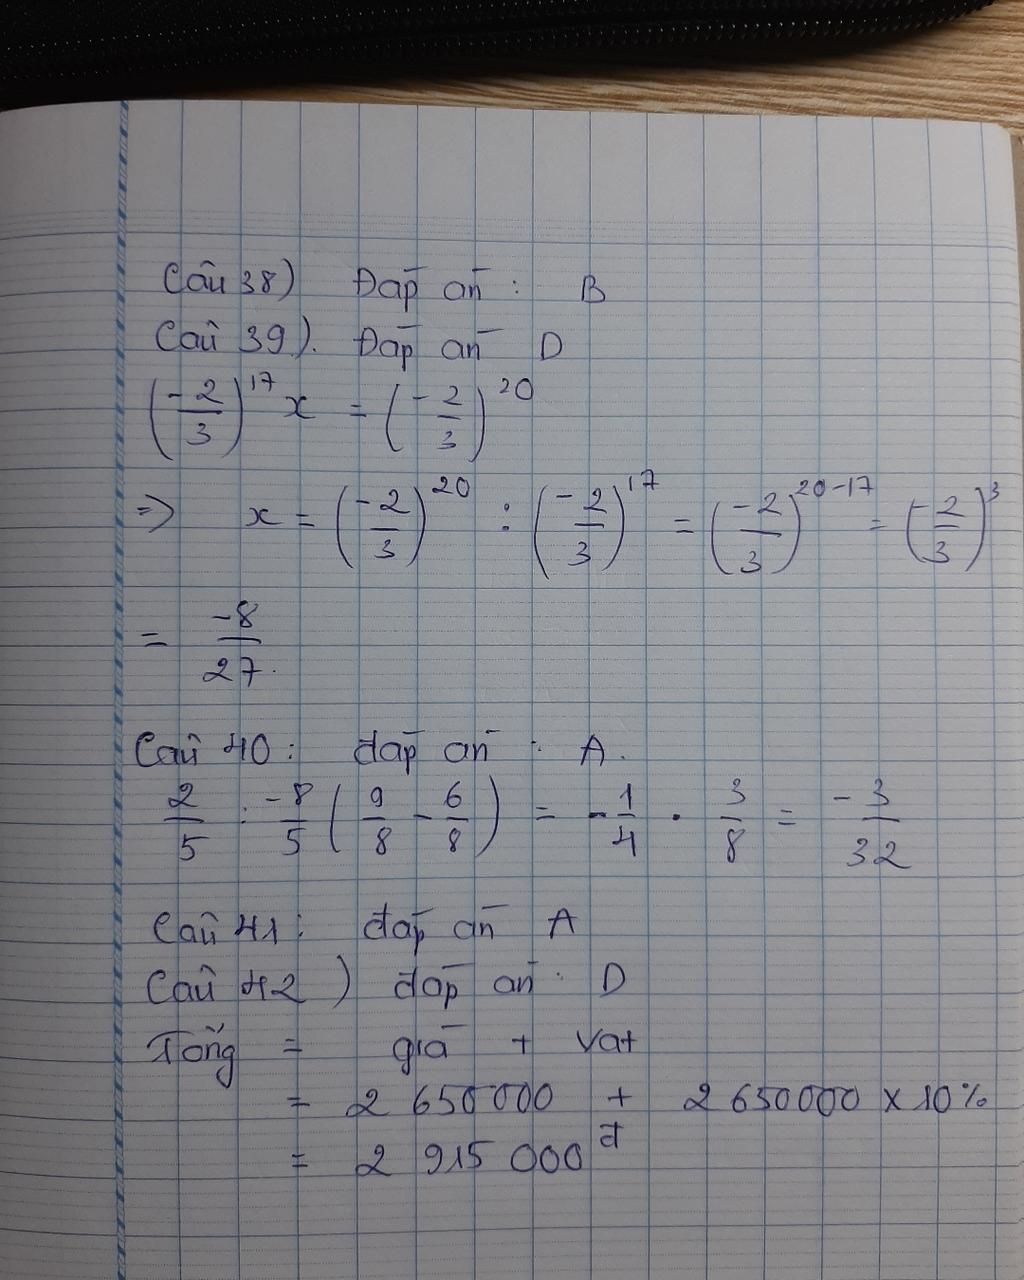 Câu 38) Đáp án : B
Câu 39). Đáp án D
(-2/3)^17 x = (-2/3)^20
=> x = (-2/3)^20 : (-2/3)^17 = (-2/3)^20-17 = (-2/3)^3
= -8/27.
Câu 40 : đáp án : A.
2/5 : -8/5 (9/8 - 6/8) = -1/4 . 3/8 = -3/32
Câu 41 : đáp án A
Câu 42 ) đáp án : D
Tổng = giá + Vat
= 2 650 000 + 2 650000 x 10%
= 2 915 000 đ